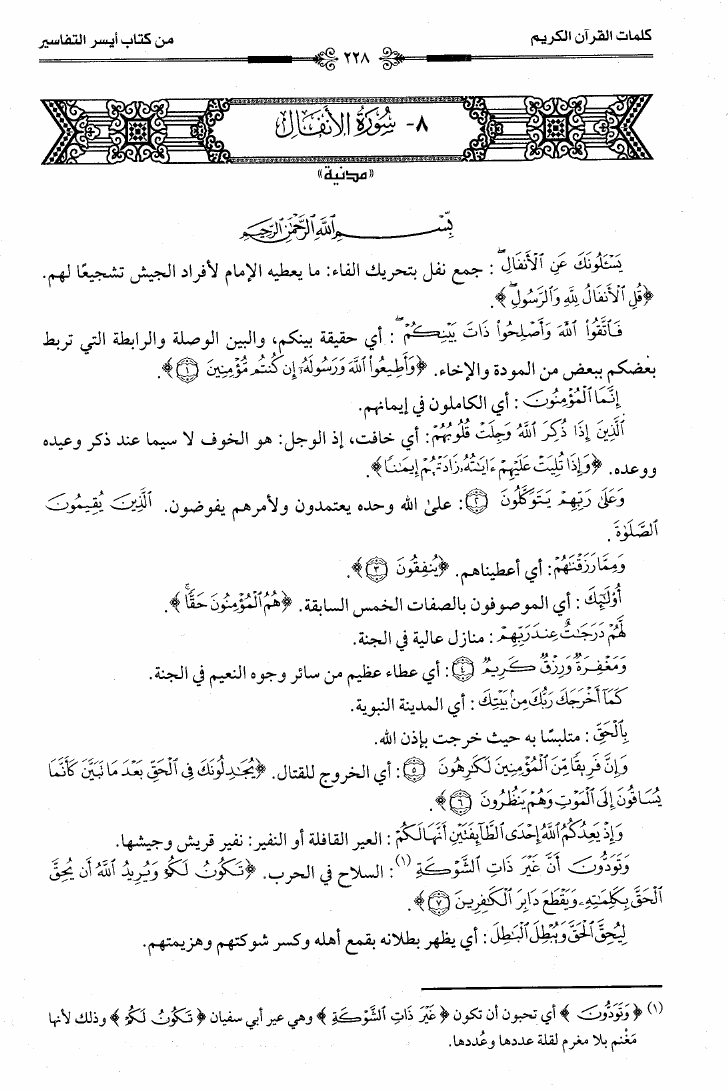 كلمات القرآن الكريم
٢٢٨
من كتاب أيسر التفاسير
٨- سُورَةُ الأَنفَالِ
«مدنية»
بِسْمِ اللَّهِ الرَّحْمَنِ الرَّحِيمِ
يَسْـَٔلُونَكَ عَنِ ٱلْأَنفَالِۖ: جمع نفل بتحريك الفاء: ما يعطيه الإمام لأفراد الجيش تشجيعًا لهم.
﴿قُلِ ٱلْأَنفَالُ لِلَّهِ وَٱلرَّسُولِۖ﴾.
فَٱتَّقُوا۟ ٱللَّهَ وَأَصْلِحُوا۟ ذَاتَ بَيْنِكُمْۖ: أي حقيقة بينكم، والبين الوصلة والرابطة التي تربط
بعضكم ببعض من المودة والإخاء. ﴿وَأَطِيعُوا۟ ٱللَّهَ وَرَسُولَهُۥٓ إِن كُنتُم مُّؤْمِنِينَ ١﴾.
إِنَّمَا ٱلْمُؤْمِنُونَ: أي الكاملون في إيمانهم.
ٱلَّذِينَ إِذَا ذُكِرَ ٱللَّهُ وَجِلَتْ قُلُوبُهُمْ: أي خافت، إذ الوجل: هو الخوف لا سيما عند ذكر وعيده
ووعده. ﴿وَإِذَا تُلِيَتْ عَلَيْهِمْ ءَايَٰتُهُۥ زَادَتْهُمْ إِيمَٰنًا﴾.
وَعَلَىٰ رَبِّهِمْ يَتَوَكَّلُونَ ٢: علىٰ الله وحده يعتمدون ولأمرهم يفوضون. ٱلَّذِينَ يُقِيمُونَ
ٱلصَّلَوٰةَ.
وَمِمَّا رَزَقْنَٰهُمْ: أي أعطيناهم. ﴿يُنفِقُونَ ٣﴾.
أُو۟لَٰٓئِكَ: أي الموصوفون بالصفات الخمس السابقة. ﴿هُمُ ٱلْمُؤْمِنُونَ حَقًّاۚ﴾.
لَّهُمْ دَرَجَٰتٌ عِندَ رَبِّهِمْ: منازل عالية في الجنة.
وَمَغْفِرَةٌ وَرِزْقٌ كَرِيمٌ ٤: أي عطاء عظيم من سائر وجوه النعيم في الجنة.
كَمَآ أَخْرَجَكَ رَبُّكَ مِنۢ بَيْتِكَ: أي المدينة النبوية.
بِٱلْحَقِّ: متلبسًا به حيث خرجت بإذن الله.
وَإِنَّ فَرِيقًا مِّنَ ٱلْمُؤْمِنِينَ لَكَٰرِهُونَ ٥: أي الخروج للقتال. ﴿يُجَٰدِلُونَكَ فِى ٱلْحَقِّ بَعْدَ مَا تَبَيَّنَ كَأَنَّمَا
يُسَاقُونَ إِلَى ٱلْمَوْتِ وَهُمْ يَنظُرُونَ ٦﴾.
وَإِذْ يَعِدُكُمُ ٱللَّهُ إِحْدَى ٱلطَّآئِفَتَيْنِ أَنَّهَا لَكُمْ: العير القافلة أو النفير: نفير قريش وجيشها.
وَتَوَدُّونَ أَنَّ غَيْرَ ذَاتِ ٱلشَّوْكَةِ (١): السلاح في الحرب. ﴿تَكُونُ لَكُمْ وَيُرِيدُ ٱللَّهُ أَن يُحِقَّ
ٱلْحَقَّ بِكَلِمَٰتِهِۦ وَيَقْطَعَ دَابِرَ ٱلْكَٰفِرِينَ ٧﴾.
لِيُحِقَّ ٱلْحَقَّ وَيُبْطِلَ ٱلْبَٰطِلَ: أي يظهر بطلانه بقمع أهله وكسر شوكتهم وهزيمتهم.
(١) ﴿وَتَوَدُّونَ﴾ أي تحبون أن تكون ﴿غَيْرَ ذَاتِ ٱلشَّوْكَةِ﴾ وهي عير أبي سفيان ﴿تَكُونُ لَكُمْ﴾ وذلك لأنها
مَغْنم بلا مغرم لقلة عددها وعُددها.